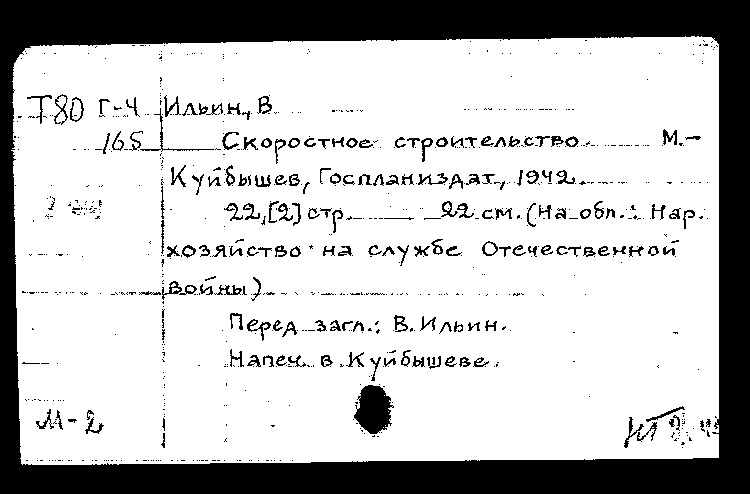 Т80 Г-4 Ильин, В
165 Скоростное строительство М.-
Куйбышев, Госпланиздат, 1942.
22,[2] стр. 22 см. (На обл.: Нар.
хозяйство на службе Отечественной
войны)
Перед загл.: В. Ильин.
Напеч. в Куйбышеве.
М-2